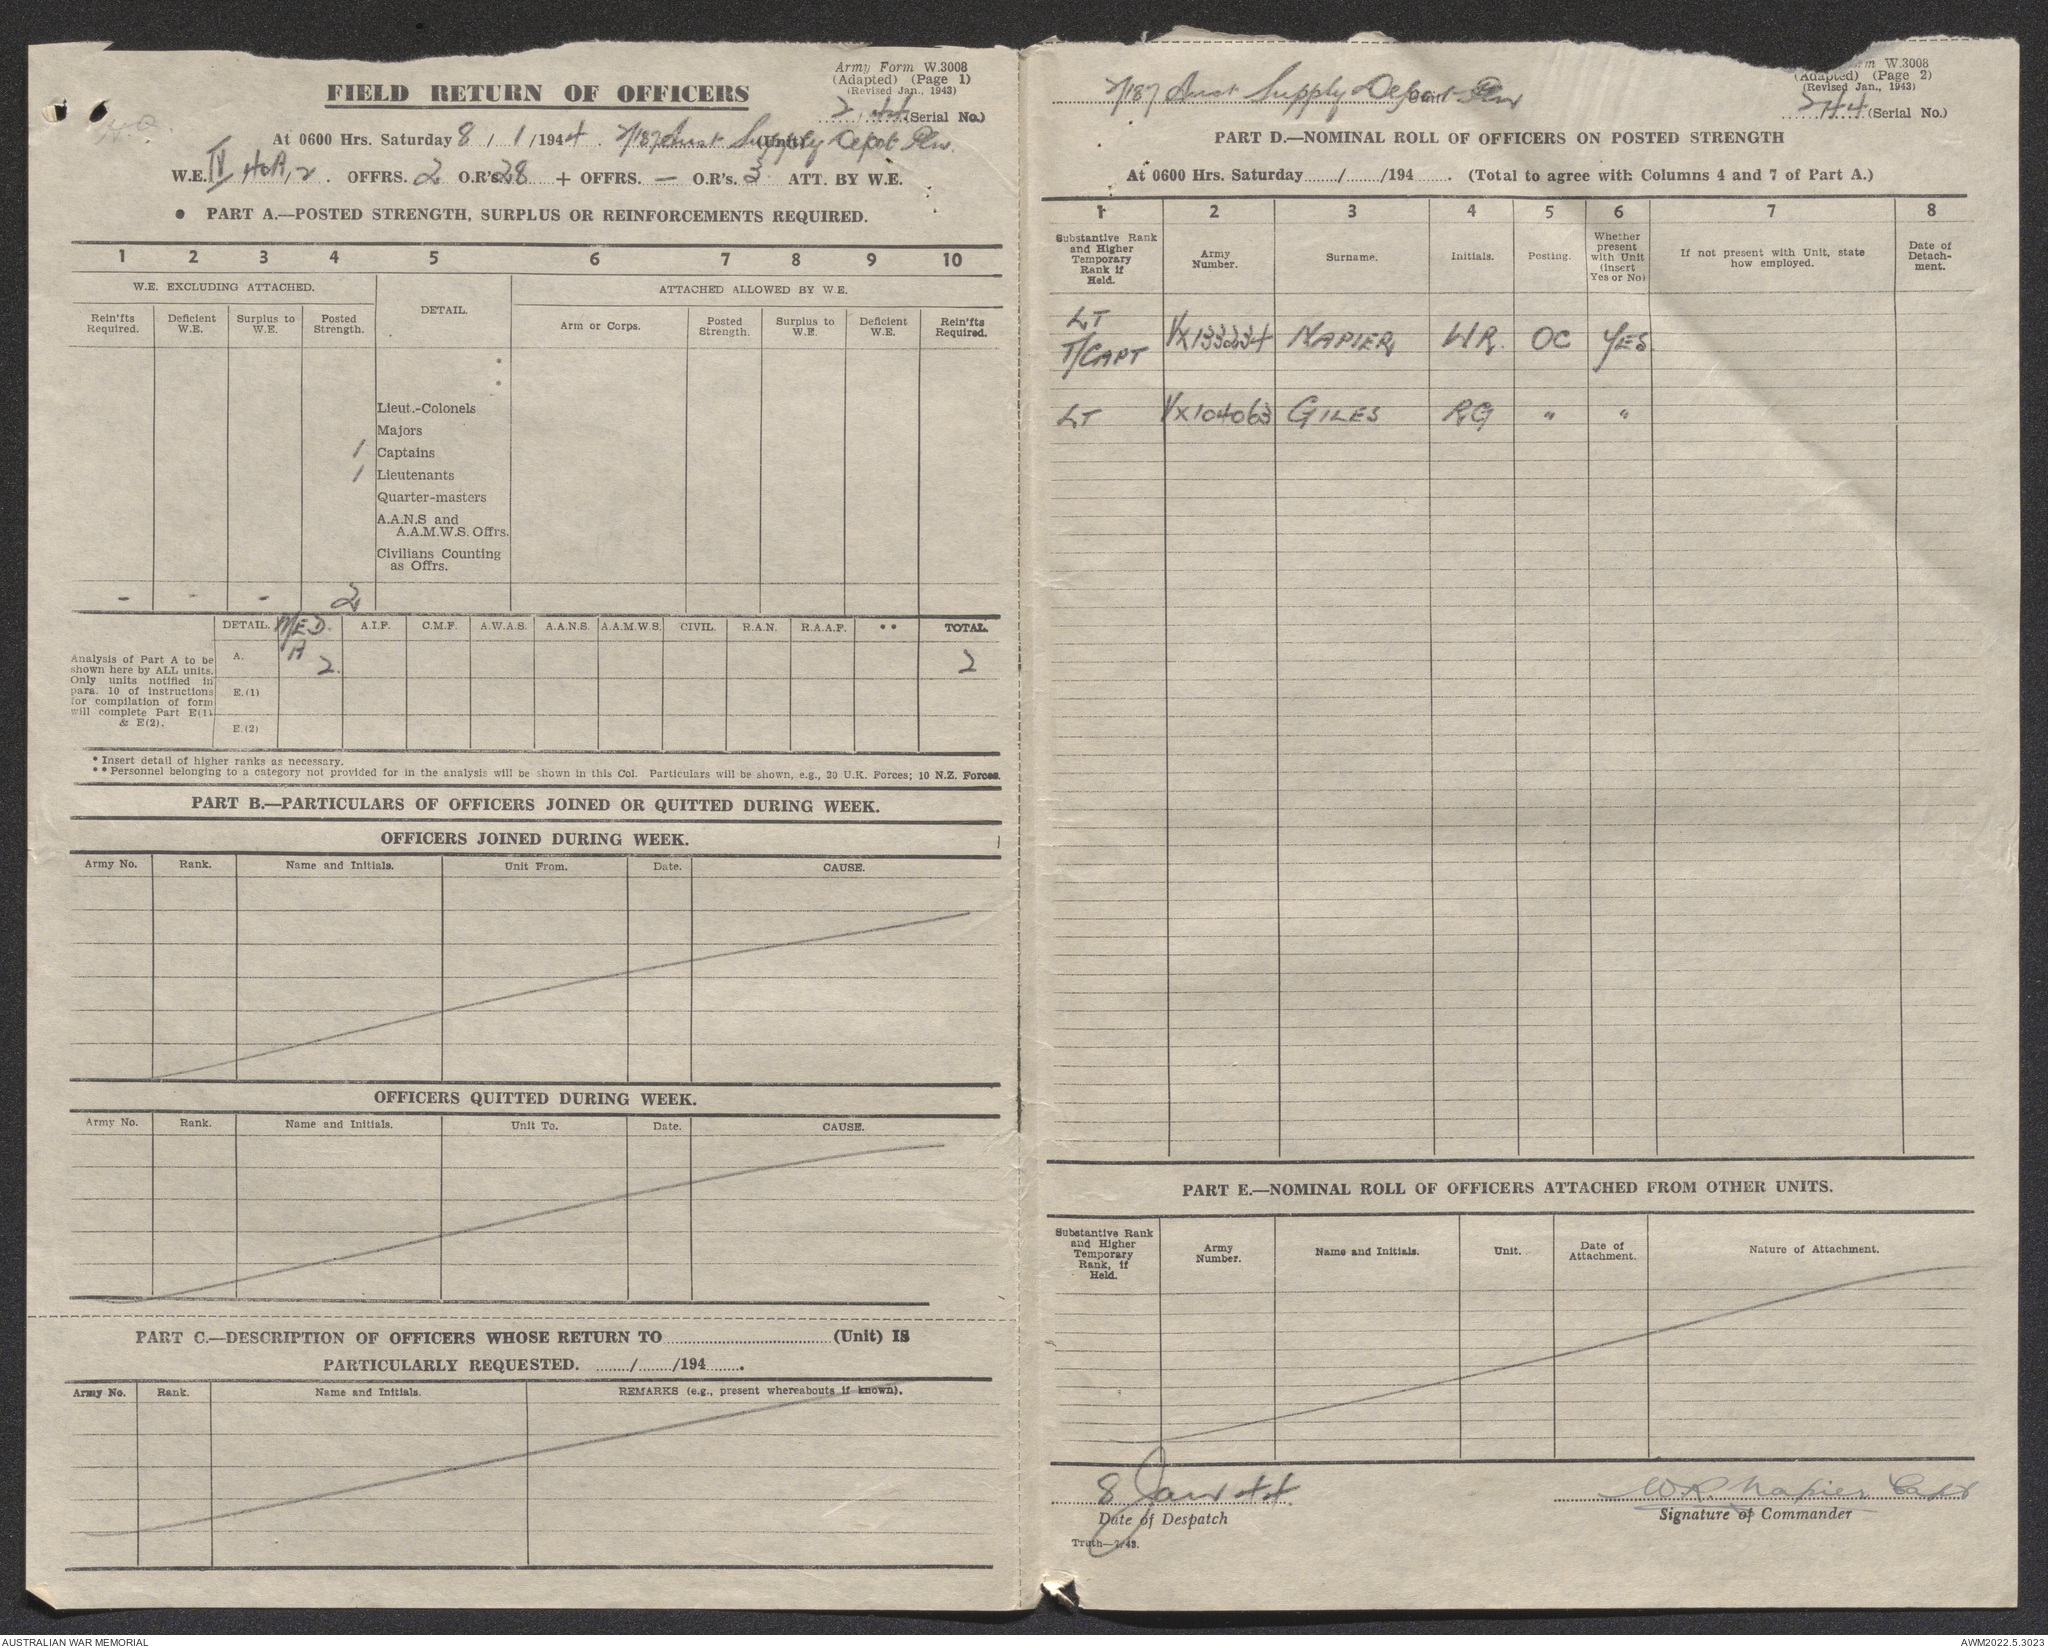 Army Form W.3008
(Adapted) (Page 1)
(Revised Jan., 1943)
FIELD RETURN OF OFFICERS
2/44 (Serial No.)
At 0600 Hrs. Saturday 8/1/1944. 2/187 Aust Supply Depot Pln (Unit)
W.E. IV 40A/2. OFFRS. 2 O.R's 28 + OFFRS. — O.R's. 3 ATT. BY W.E.
• PART A.—POSTED STRENGTH, SURPLUS OR REINFORCEMENTS REQUIRED.
1 2 3 4 5 6 7 8 9 10
W.E. EXCLUDING ATTACHED. DETAIL. ATTACHED ALLOWED BY W.E.
Rein'fts Required. Deficient W.E. Surplus to W.E. Posted Strength. Arm or Corps. Posted Strength. Surplus to W.E. Deficient W.E. Rein'fts Required.
*
*
Lieut.-Colonels
Majors
1 Captains
1 Lieutenants
Quarter-masters
A.A.N.S and
A.A.M.W.S. Offrs.
Civilians Counting
as Offrs.
- - - 2
DETAIL. MED. A.I.F. C.M.F. A.W.A.S. A.A.N.S. A.A.M.W.S. CIVIL. R.A.N. R.A.A.F. ** TOTAL.
Analysis of Part A to be
shown here by ALL units.
Only units notified in
para. 10 of instructions
for compilation of form
will complete Part E(1)
& E(2).
A. A 2. 2
E.(1)
E.(2)
* Insert detail of higher ranks as necessary.
** Personnel belonging to a category not provided for in the analysis will be shown in this Col. Particulars will be shown, e.g., 20 U.K. Forces; 10 N.Z. Forces.
PART B.—PARTICULARS OF OFFICERS JOINED OR QUITTED DURING WEEK.
OFFICERS JOINED DURING WEEK.
Army No. Rank. Name and Initials. Unit From. Date. CAUSE.
OFFICERS QUITTED DURING WEEK.
Army No. Rank. Name and Initials. Unit To. Date. CAUSE.
PART C.—DESCRIPTION OF OFFICERS WHOSE RETURN TO ........ (Unit) IS
PARTICULARLY REQUESTED. ....../....../194......
Army No. Rank. Name and Initials. REMARKS (e.g., present whereabouts if known).
Form W.3008
(Adapted) (Page 2)
(Revised Jan., 1943)
2/187 Aust Supply Depot Pln
2/44 (Serial No.)
PART D.—NOMINAL ROLL OF OFFICERS ON POSTED STRENGTH
At 0600 Hrs. Saturday ....../....../194...... (Total to agree with Columns 4 and 7 of Part A.)
1 2 3 4 5 6 7 8
Substantive Rank and Higher Temporary Rank if Held. Army Number. Surname. Initials. Posting. Whether present with Unit (insert Yes or No) If not present with Unit, state how employed. Date of Detachment.
LT
T/CAPT VX133234 NAPIER WR. OC YES.
LT VX104063 GILES RG " "
PART E.—NOMINAL ROLL OF OFFICERS ATTACHED FROM OTHER UNITS.
Substantive Rank and Higher Temporary Rank, if Held. Army Number. Name and Initials. Unit. Date of Attachment. Nature of Attachment.
8 Jan 44
Date of Despatch
W.R. Napier Capt
Signature of Commander
Truth—2/43.
AUSTRALIAN WAR MEMORIAL
AWM2022.5.3023